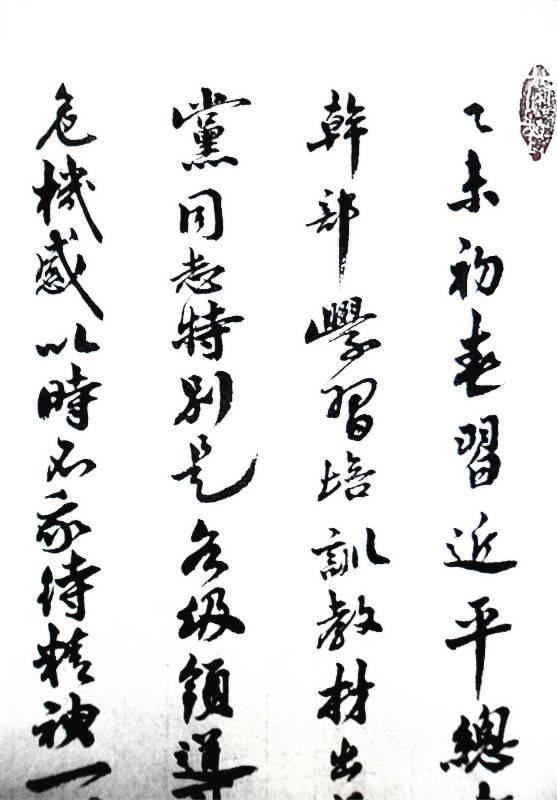 乙未初春習近平總
幹部學習培訓教材出
黨同志特別是各级領導
危機感以時不我待精神一